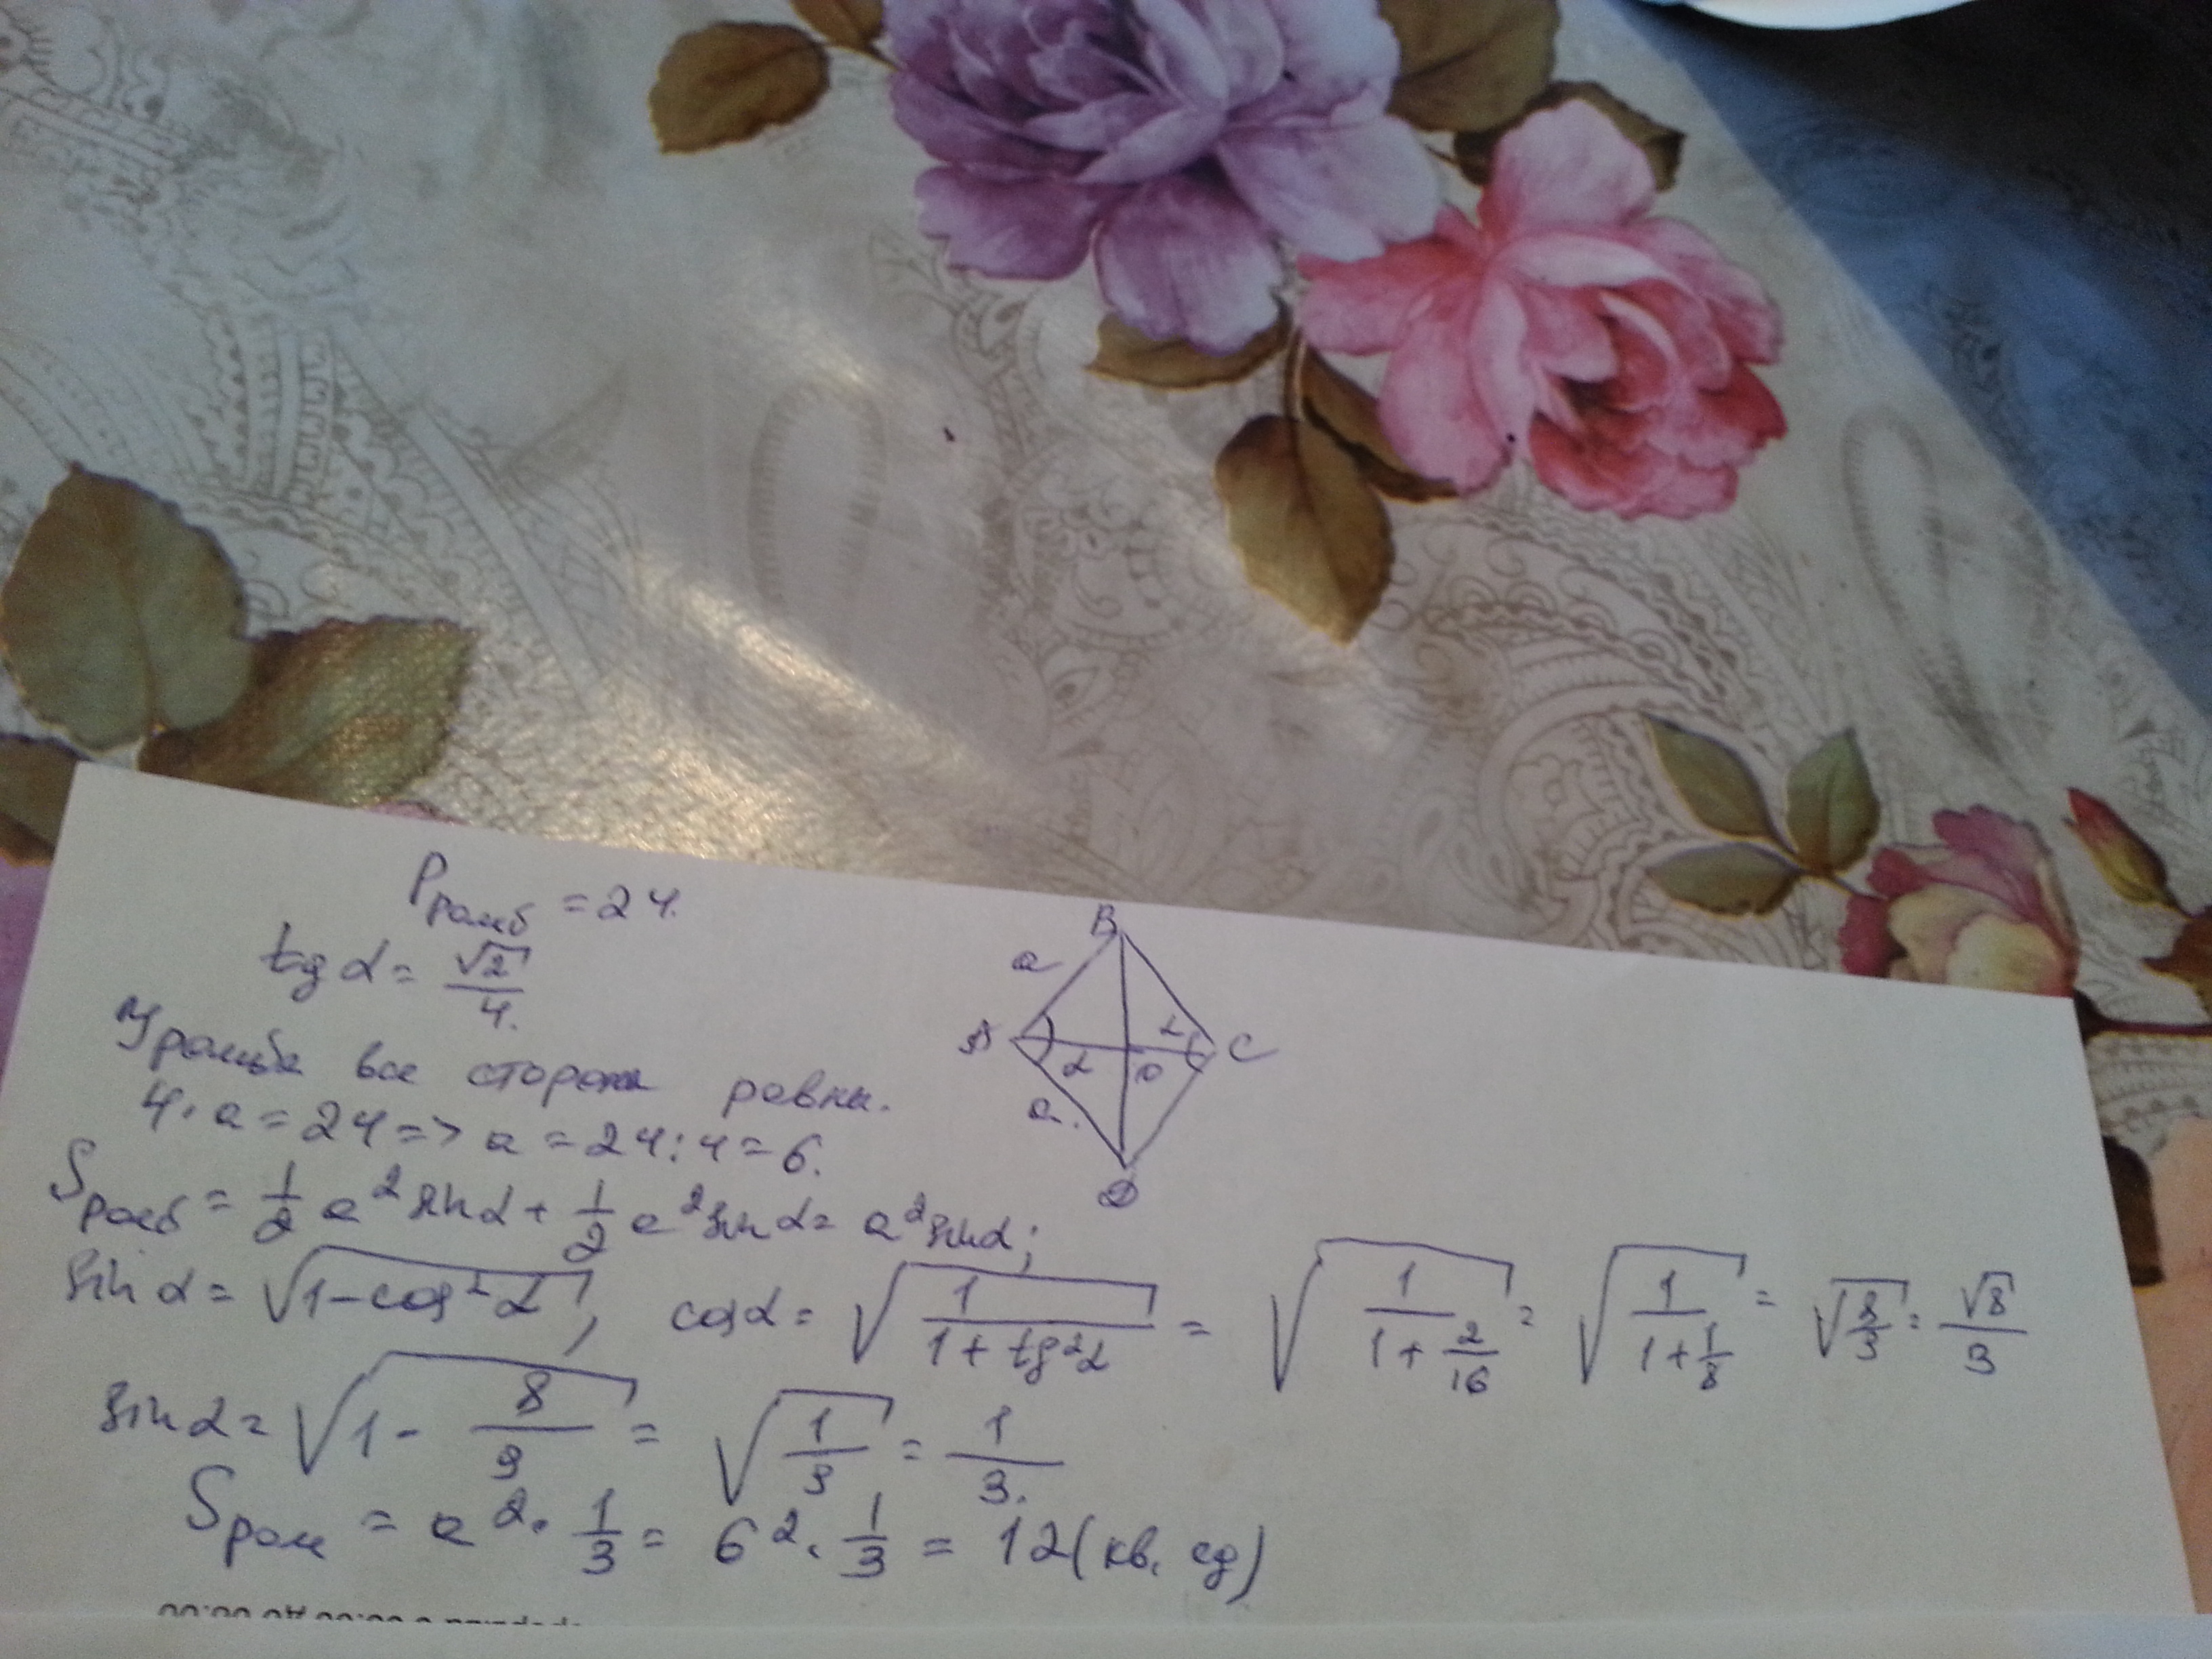 Pромб = 24.
tg α = √2/4.
У ромба все стороны равны.
4·a = 24 => a = 24:4 = 6.
Sромб = 1/2 a² sin α + 1/2 a² sin α = a² sin α;
sin α = √(1-cos² α), cos α = √(1/(1+tg² α)) = √(1/(1+2/16)) = √(1/(1+1/8)) = √(8/9) = √8/3
sin α = √(1 - 8/9) = √(1/9) = 1/3.
Sром = a² · 1/3 = 6² · 1/3 = 12 (кв. ед)
B
a
A
α
α
O
C
a.
D